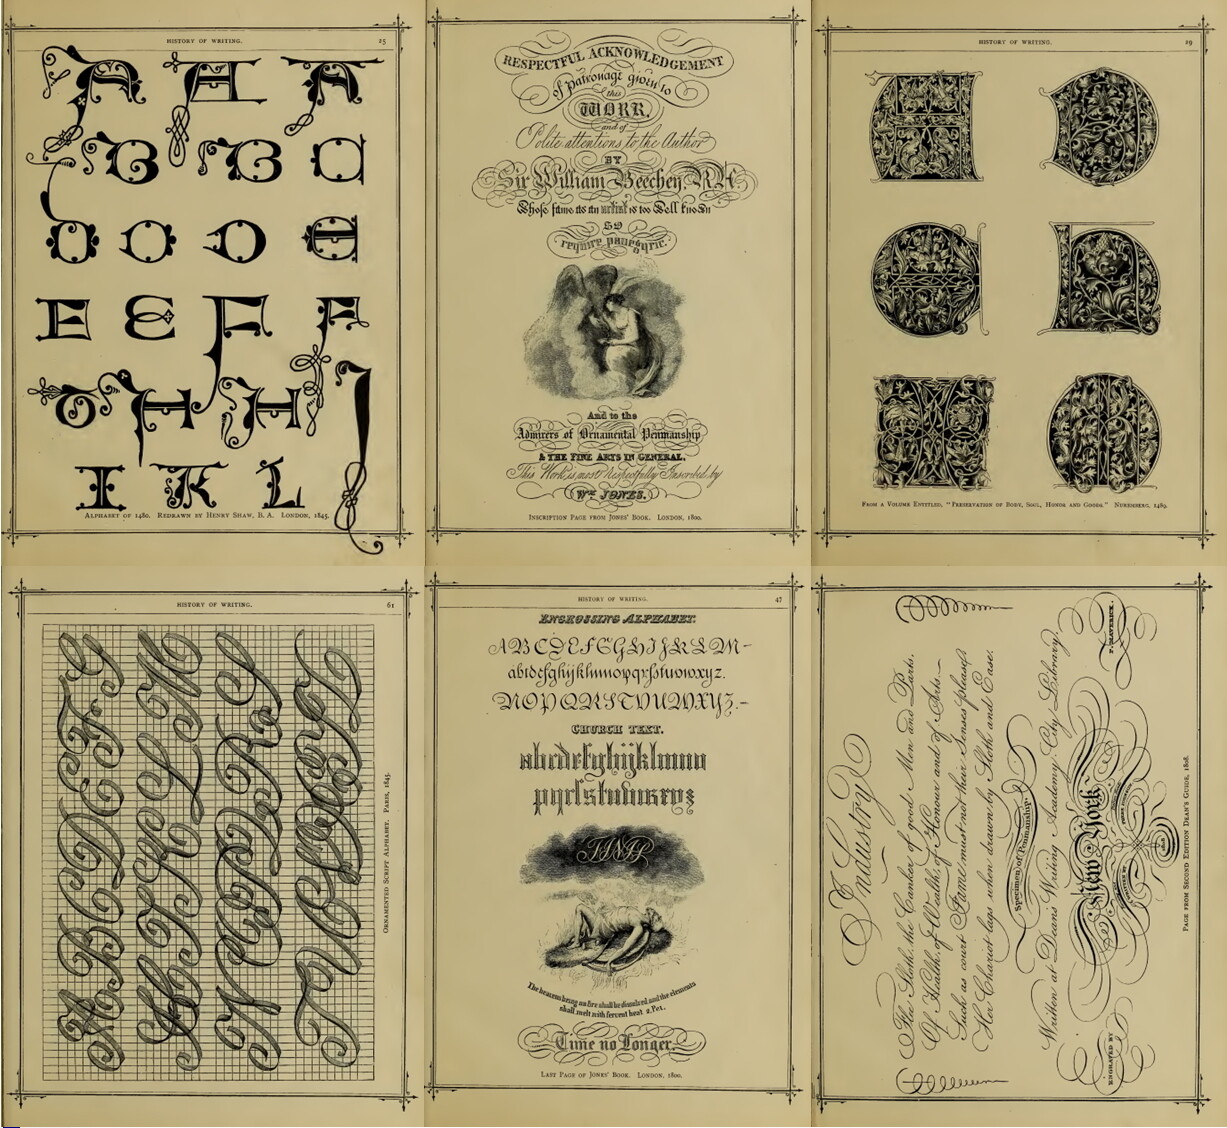 HISTORY OF WRITING.
25
A A A
B B C
D D D E
E E F F
G H H J
I K L
ALPHABET OF 1480. REDRAWN BY HENRY SHAW, B. A. LONDON, 1845.
RESPECTFUL ACKNOWLEDGEMENT
of patronage given to
this
WORK,
and of
Polite attentions to the Author
BY
Sir William Beechey, R.A.
Whose fame as an artist is too Well known
to
require panegyric.
And to the
Admirers of Ornamental Penmanship
& THE FINE ARTS IN GENERAL,
This Work is most respectfully Inscribed by
Wm JONES.
INSCRIPTION PAGE FROM JONES' BOOK. LONDON, 1800.
HISTORY OF WRITING.
29
FROM A VOLUME ENTITLED, "PRESERVATION OF BODY, SOUL, HONOR AND GOODS." NUREMBERG, 1489.
HISTORY OF WRITING.
61
A B C D E F G
H I K L M
N O P Q R S
T V U X Y Z
ORNAMENTED SCRIPT ALPHABET. PARIS, 1845.
HISTORY OF WRITING.
47
ENGROSSING ALPHABET.
ABCDEFGHIJKLM–
abcdefghijklmnopqrsstuvwxyz.
NOPQRSTVUWXYZ.–
CHURCH TEXT.
abcdefghijklmno
pqrsstuvwxyz
FINIS
The heavens being on fire shall be dissolved, and the elements
shall melt with fervent heat 2. Pet.
Time no Longer.
LAST PAGE OF JONES' BOOK. LONDON, 1800.
Industry
Fly Sloth, the Canker of good Men and Parts,
Of Health, of Wealth, of Honour and of Arts—
Such as court Fame must not their Senses please
Her Chariot lags when drawn by Sloth and Ease.
Specimen of Penmanship
Written at Dean's Writing Academy, City Library,
New York
ENGRAVED BY
P. MAVERICK.
PAGE FROM SECOND EDITION DEAN'S GUIDE, 1808.